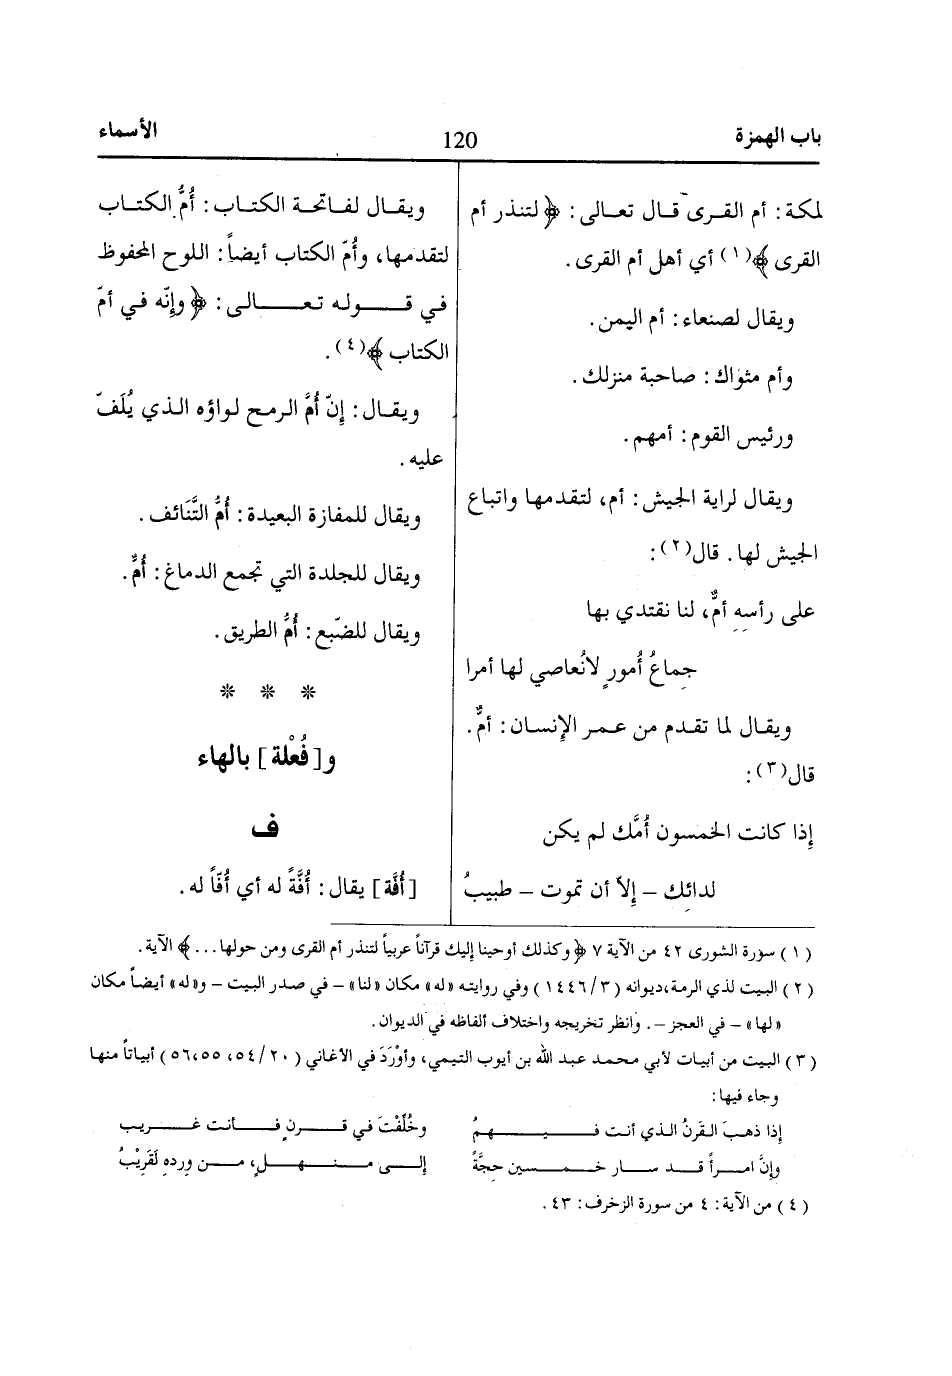 باب الهمزة
120
الأسماء
لمكة: أم القرى قال تعالى: ﴿لتنذر أم
القرى﴾(١) أي أهل أم القرى.
ويقال لصنعاء: أم اليمن.
وأم مثواك: صاحبة منزلك.
ورئيس القوم: أمهم.
ويقال لراية الجيش: أم، لتقدمها واتباع
الجيش لها. قال(٢):
على رأسِهِ أمٌّ، لنا نقتدي بها
جِماعُ أُمورٍ لانُعاصي لها أمرا
ويقال لما تقدم من عمر الإنسان: أمٌّ.
قال(٣):
إذا كانت الخمسون أُمَّك لم يكن
لدائِك – إلاّ أن تموت – طبيبُ
ويقال لفاتحة الكتاب: أُمُّ الكتاب
لتقدمها، وأُمّ الكتاب أيضاً: اللوح المحفوظ
في قوله تعالى: ﴿وإنّه في أمّ
الكتاب﴾(٤).
ويقال: إنّ أُمَّ الرمح لواؤه الذي يُلَفّ
عليه.
ويقال للمفازة البعيدة: أُمُّ التَّنَائف.
ويقال للجلدة التي تجمع الدماغ: أُمٌّ.
ويقال للضّبع: أُمُّ الطريق.
* * *
و[فُعْلة] بالهاء
ف
[أُفَّة] يقال: أُفَّةً له أي أُفّاً له.
(١) سورة الشورى ٤٢ من الآية ٧ ﴿وكذلك أوحينا إليك قرآناً عربياً لتنذر أم القرى ومن حولها...﴾ الآية.
(٢) البيت لذي الرمة، ديوانه (٣/١٤٤٦) وفي روايته «له» مكان «لنا» – في صدر البيت – و«له» أيضاً مكان
«لها» – في العجز –. وانظر تخريجه واختلاف ألفاظه في الديوان.
(٣) البيت من أبيات لأبي محمد عبد الله بن أيوب التيمي، وأوْرَدَ في الأغاني (٢٠/٥٤، ٥٥،٥٦) أبياتاً منها
وجاء فيها:
إذا ذهبَ القَرنُ الذي أنت فيهمُ وخُلِّفْتَ في قرنٍ فأنت غريب
وإنَّ امرأً قد سار خمسين حجَّةً إلى منهلٍ، من وردِهِ لَقَرِيْبُ
(٤) من الآية: ٤ من سورة الزخرف: ٤٣.